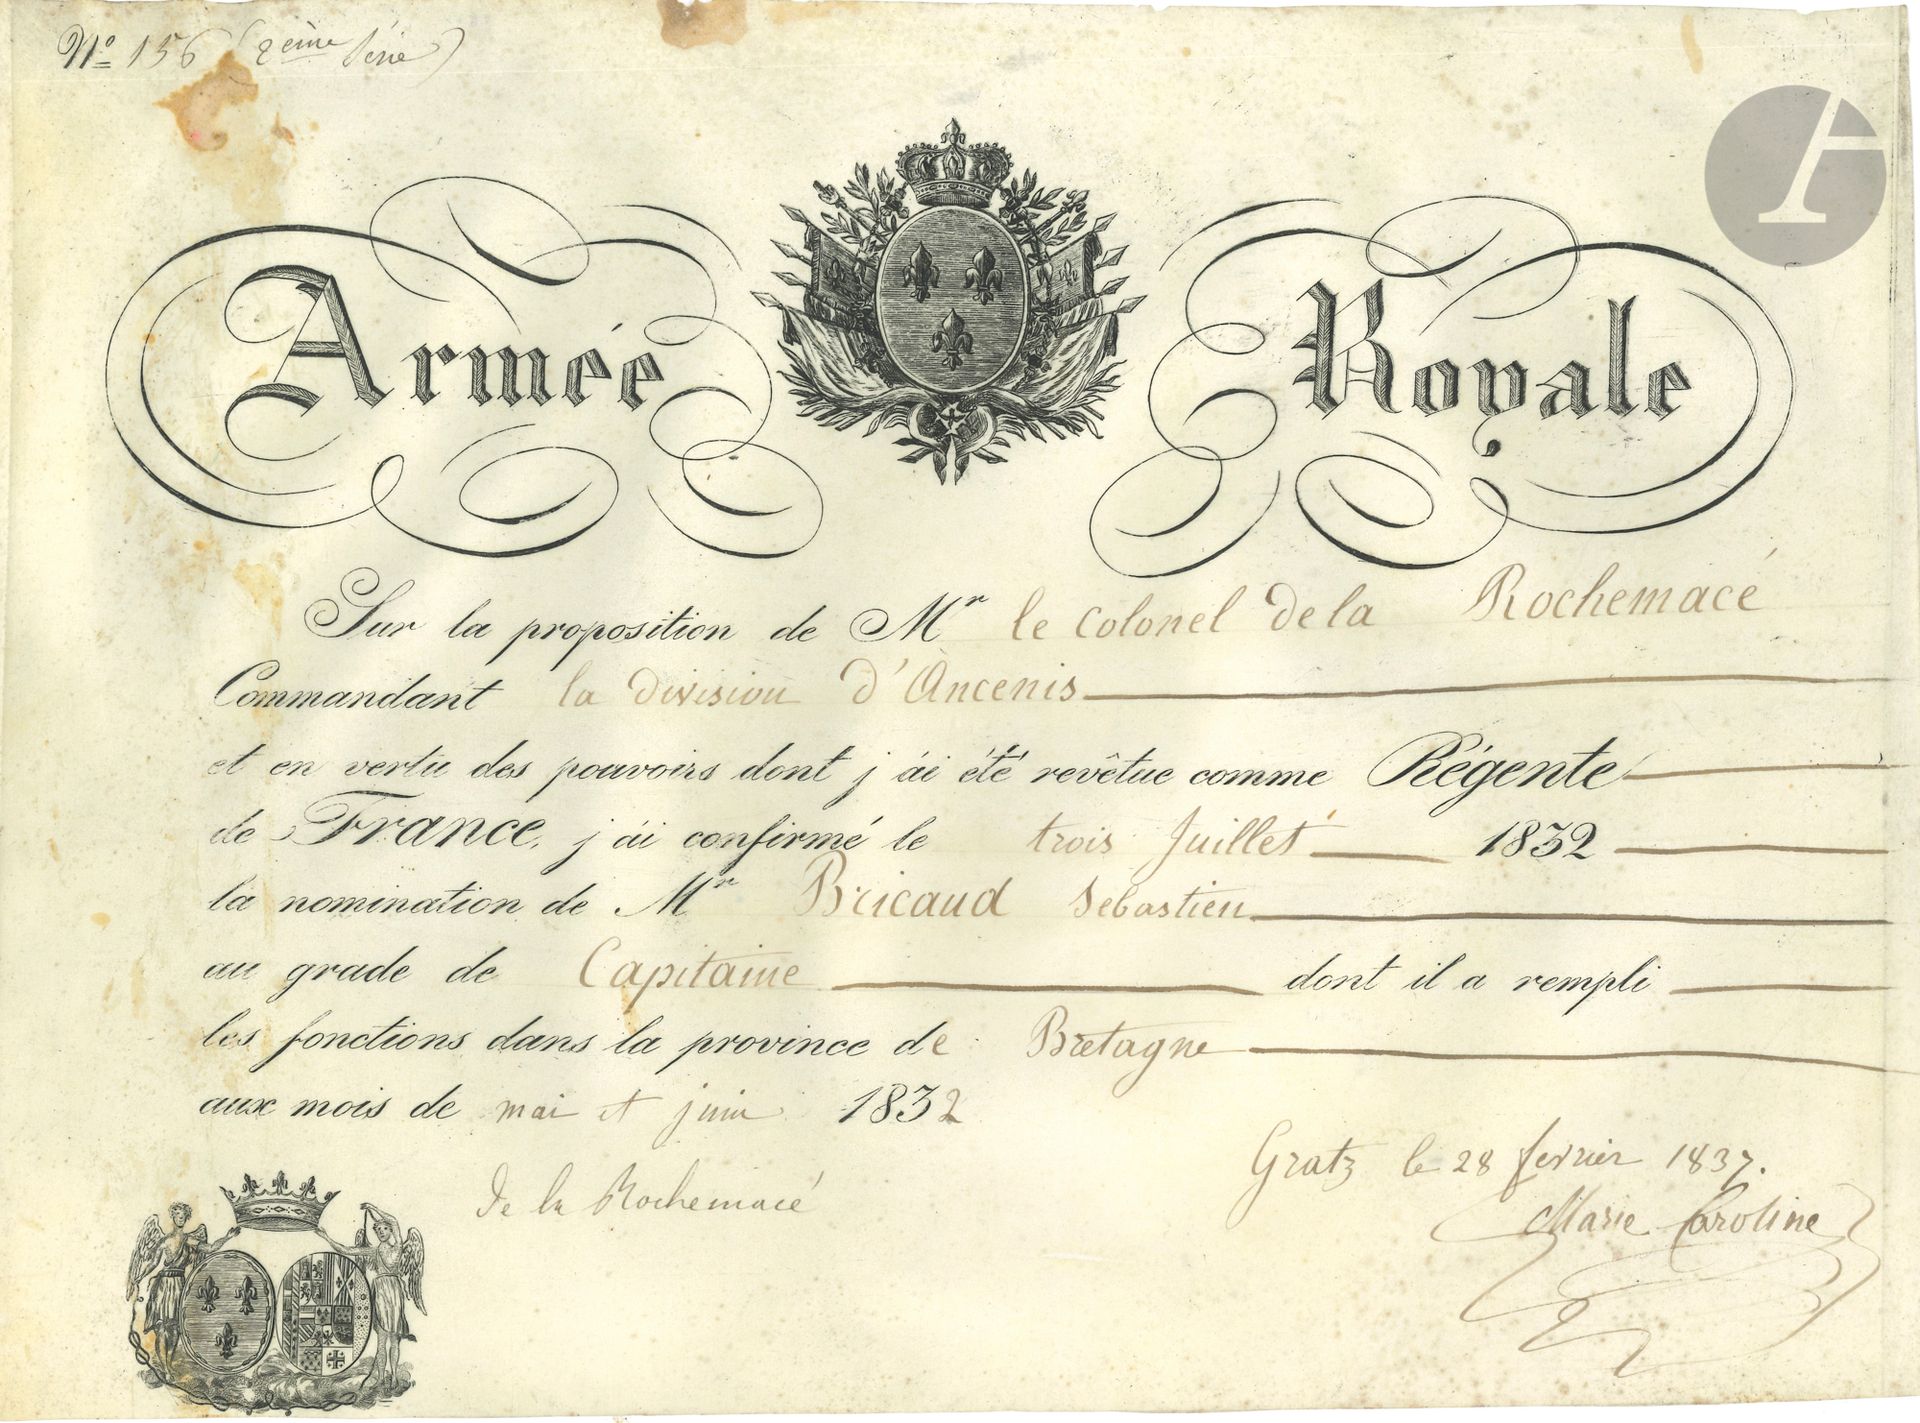 Nº 156 (2ème Série)
Armée Royale
Sur la proposition de Mr le Colonel de la Rochemacé
Commandant la division d'Ancenis
et en vertu des pouvoirs dont j'ai été revêtue comme Régente
de France, j'ai confirmé le trois Juillet 1832
la nomination de Mr Bricaud Sebastien
au grade de Capitaine dont il a rempli
les fonctions dans la province de Bretagne
aux mois de mai et juin 1832
Gratz le 28 fevrier 1837.
de la Rochemacé
Marie Caroline